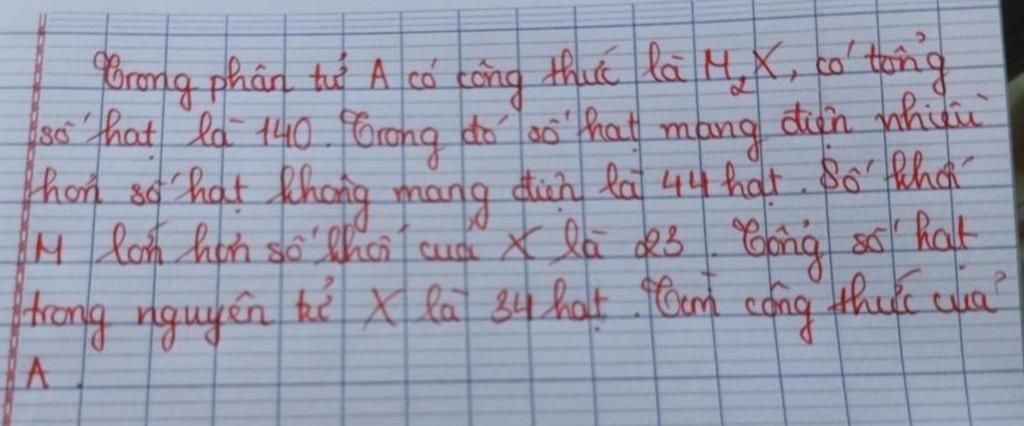 Trong phân tử A có công thức là M₂X, có tổng
số hạt là 140. Trong đó số hạt mang điện nhiều
hơn số hạt không mang điện là 44 hạt. Số khối
M lớn hơn số khối của X là 23. Tổng số hạt
trong nguyên tử X là 34 hạt. Tìm công thức của
A.